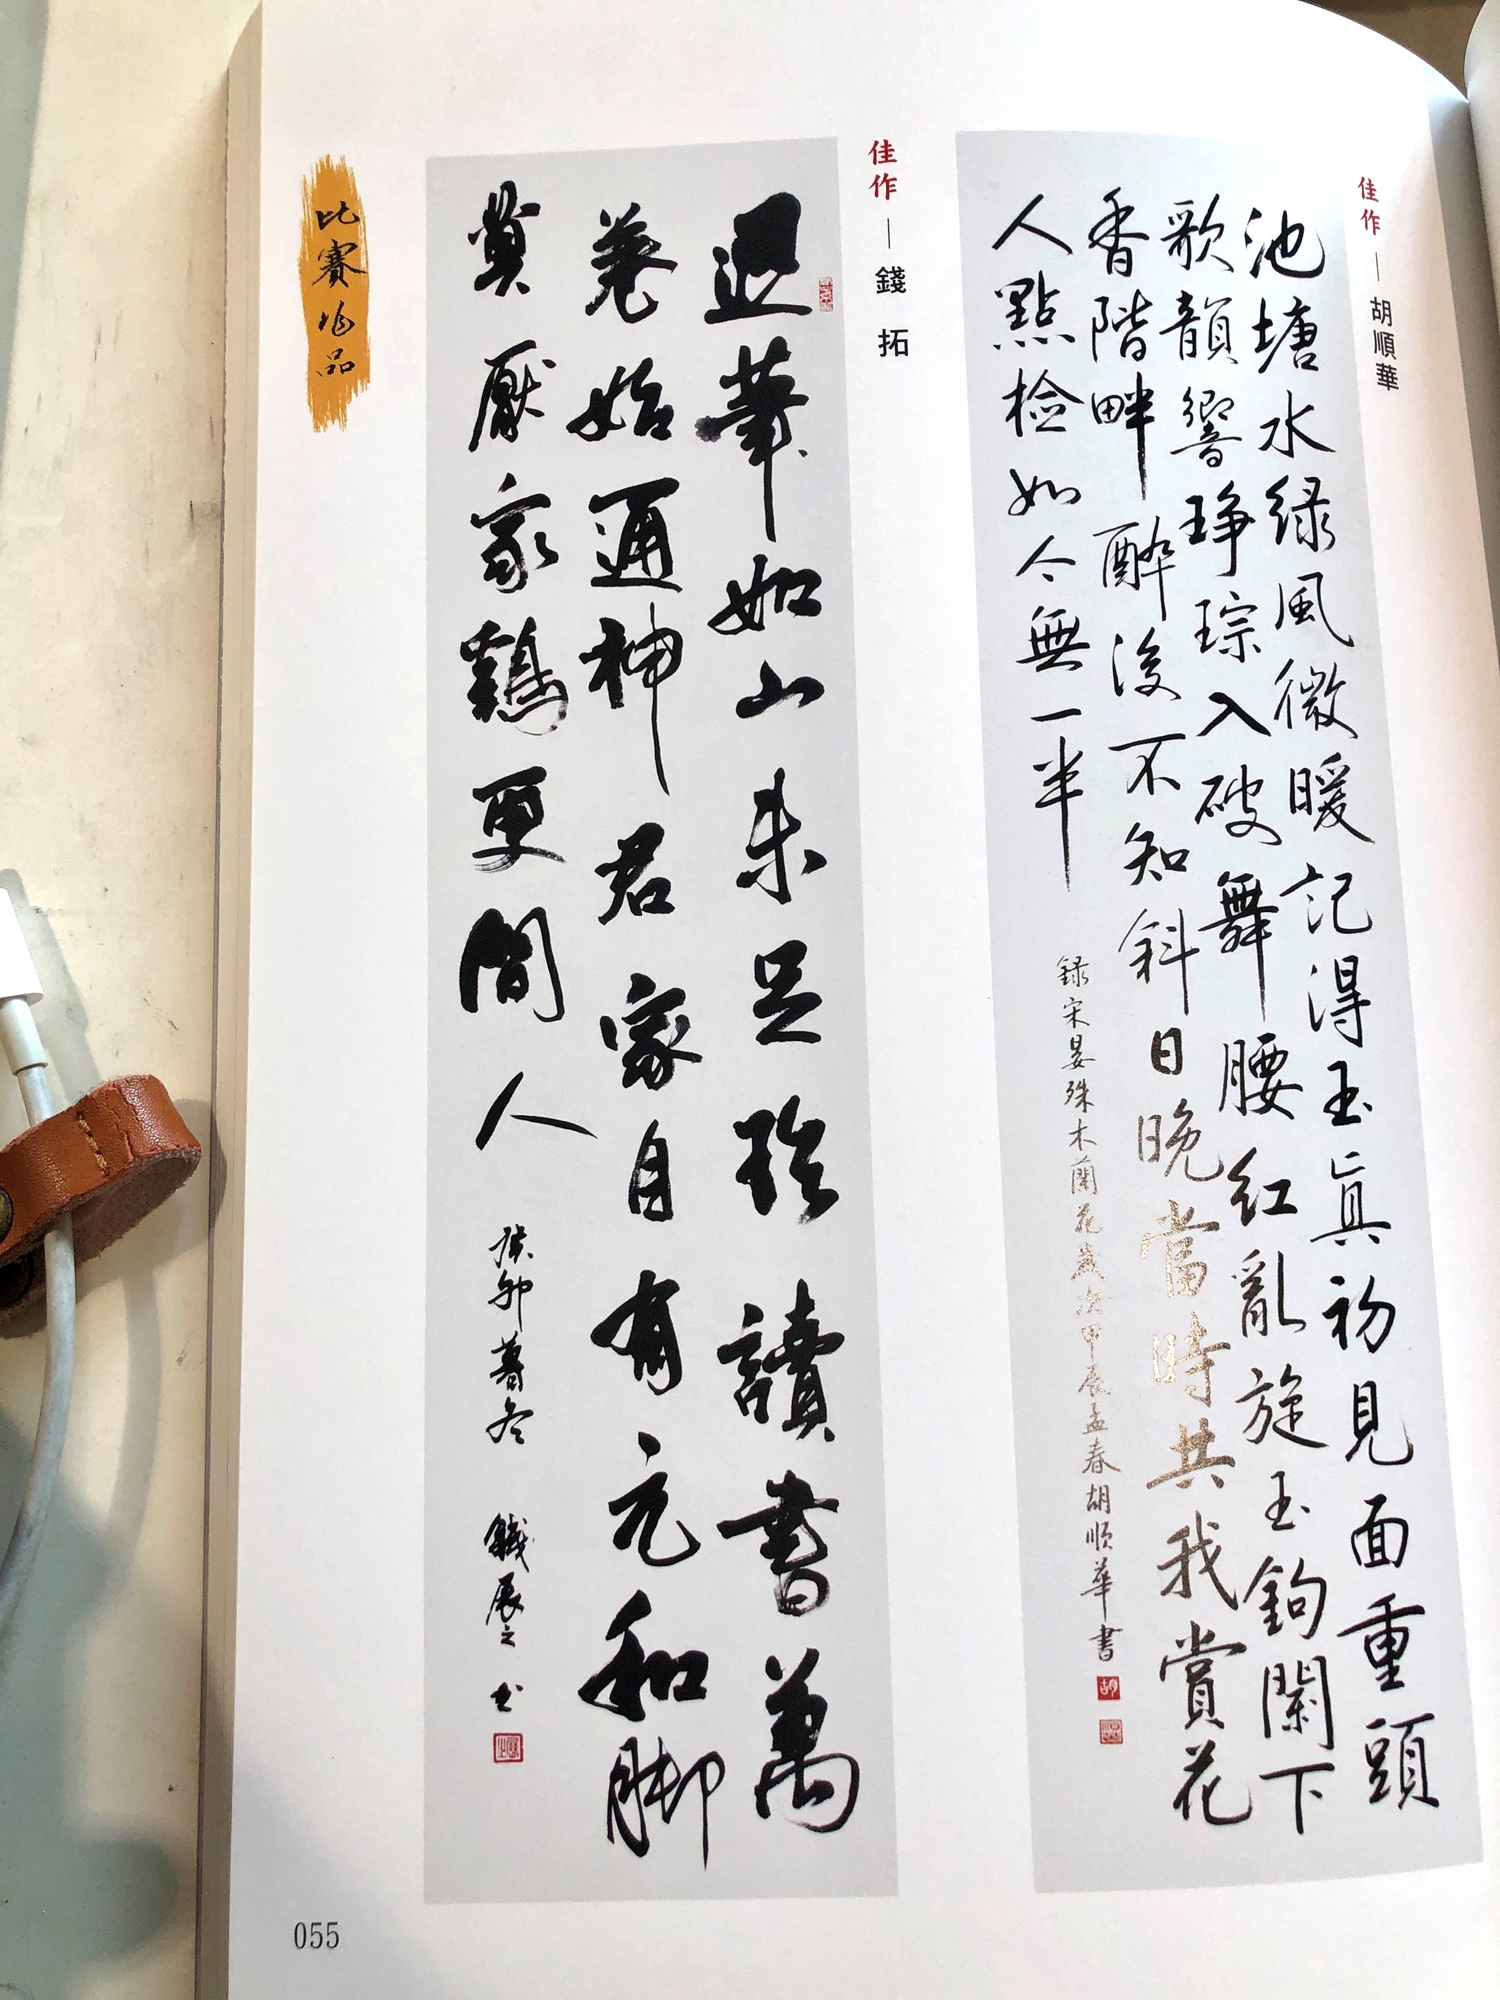 佳作—胡順華
池塘水綠風微暖記得玉真初見面重頭
歌韻響琤琮入破舞腰紅亂旋玉鉤闌下
香階畔醉後不知斜日晚當時共我賞花
人點檢如今無一半
録宋晏殊木蘭花歲次甲辰孟春胡順華書
佳作—錢拓
退筆如山未足珍讀書萬
卷始通神君家自有元和脚
莫厭家鷄更問人
癸卯暮冬 錢展之書
比賽作品
055